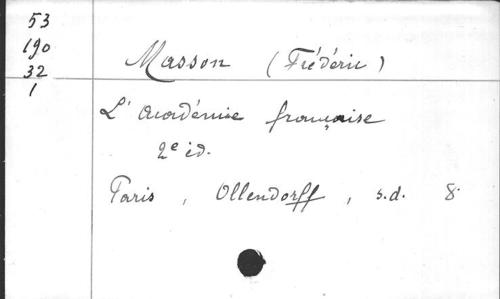 53
190
32
1
Masson (Frédéric)
L'Académie française
2e éd.
Paris, Ollendorff, s.d. 8°